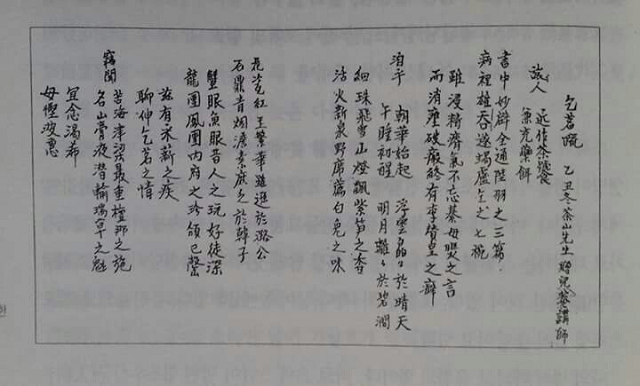 乞茗疏 乙丑冬茶山先生贈兒菴講師
旅人 近作茶饕
兼充藥餌
書中妙辟全通陸羽之三篇
病裡雄吞遂竭盧仝之七椀
雖浸精瘠氣不忘綦母煚之言
而消壅破瘢終有李贊皇之癖
洎乎 朝華始起 浮雲皛皛於晴天
午睡初醒 明月離離於碧澗
細珠飛雪山燈飄紫笋之香
活火新泉野席薦白兎之味
花瓷紅玉繁華雖遜於潞公
石鼎青烟澹素庶乏於韓子
蟹眼魚眼昔人之玩好徒深
龍團鳳團內府之珍頒已罄
玆有采薪之疾
聊伸乞茗之情
竊聞 苦海津梁最重檀那之施
名山膏液潛輸瑞草之魁
宜念渴希
毋慳波惠